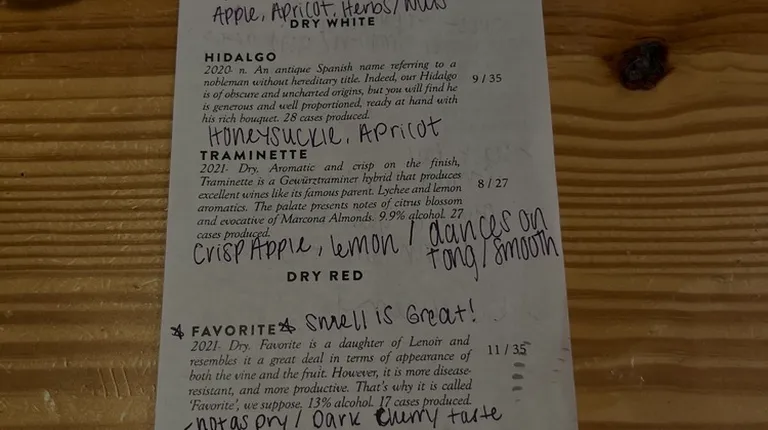 Apple, Apricot, Herbs/
DRY WHITE
HIDALGO
2020- n. An antique Spanish name referring to a
nobleman without hereditary title. Indeed, our Hidalgo
is of obscure and uncharted origins, but you will find he
is generous and well proportioned, ready at hand with
his rich bouquet. 28 cases produced.
9 / 35
Honeysuckle, Apricot
TRAMINETTE
2021- Dry. Aromatic and crisp on the finish,
Traminette is a Gewürztraminer hybrid that produces
excellent wines like its famous parent. Lychee and lemon
aromatics. The palate presents notes of citrus blossom
and evocative of Marcona Almonds. 9.9% alcohol. 27
cases produced.
8 / 27
Crisp Apple, lemon / dances on
tong / smooth
DRY RED
FAVORITE Smell is Great!
2021- Dry. Favorite is a daughter of Lenoir and
resembles it a great deal in terms of appearance of
both the vine and the fruit. However, it is more disease-
resistant, and more productive. That's why it is called
'Favorite', we suppose. 13% alcohol. 17 cases produced.
11 / 35
- not as Dry / Dark Cherry taste